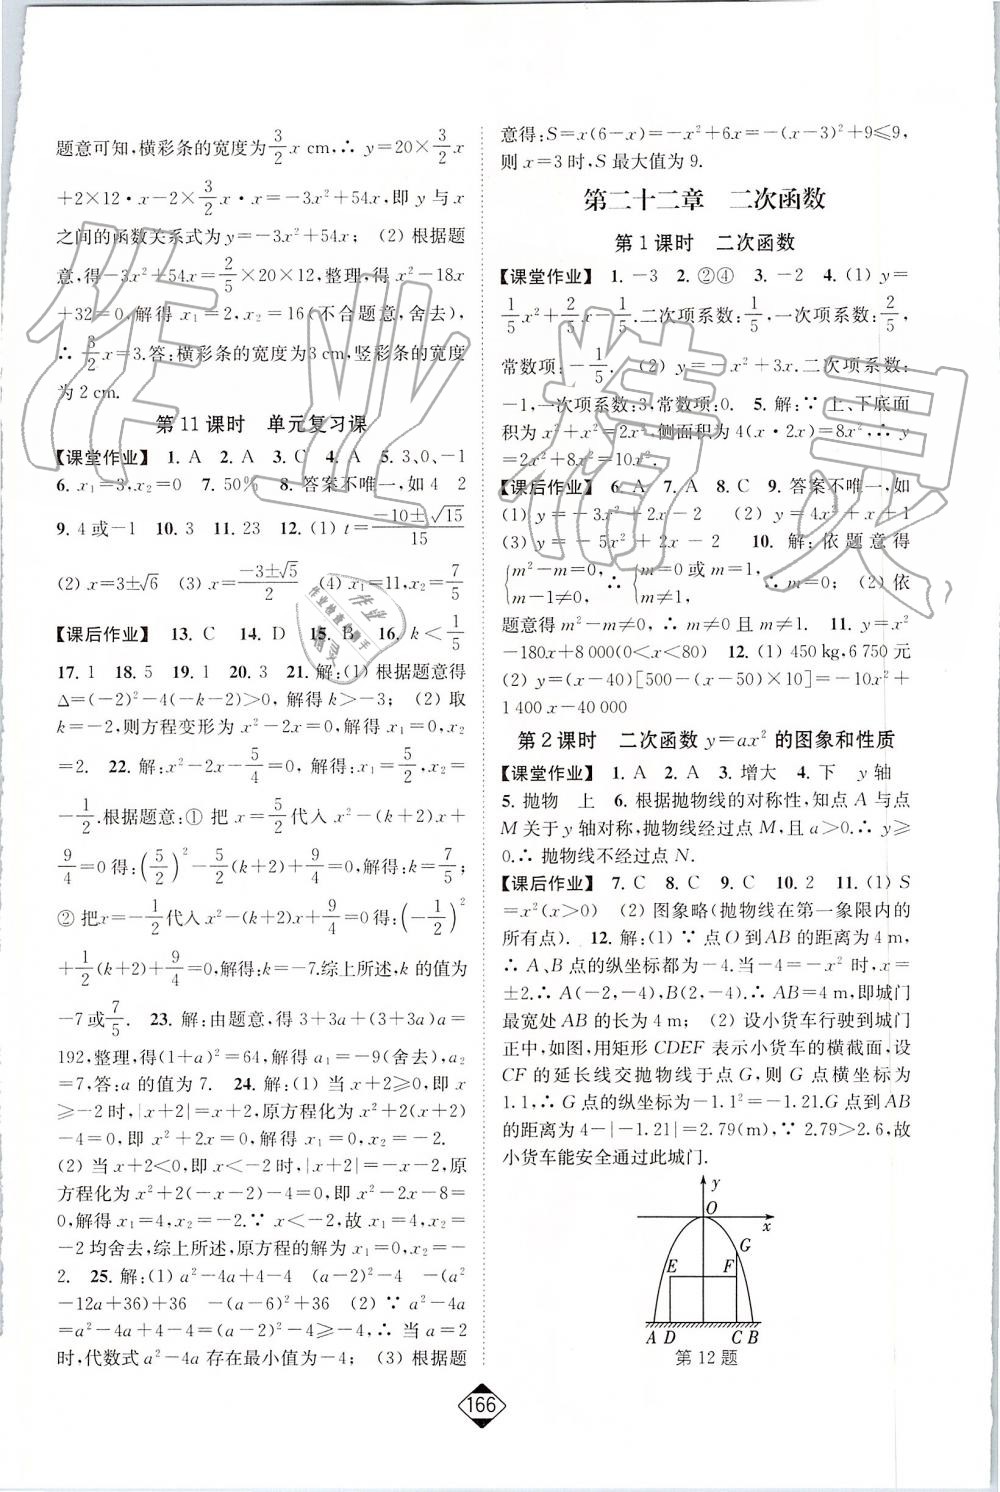 题意可知,横彩条的宽度为3/2 x cm,∴ y=20×3/2 x
+2×12·x-2×3/2 x·x=-3x²+54x,即 y 与 x
之间的函数关系式为y=-3x²+54x; (2) 根据题
意,得-3x²+54x=2/5×20×12,整理,得 x²-18x
+32=0,解得 x₁=2,x₂=16(不合题意,舍去),
∴ 3/2 x=3.答:横彩条的宽度为3 cm,竖彩条的宽度
为 2 cm.
第11课时 单元复习课
【课堂作业】 1. A 2. A 3. C 4. A 5. 3、0、-1
6. x₁=3,x₂=0 7. 50% 8. 答案不唯一,如 4 2
9. 4 或-1 10. 3 11. 23 12. (1) t=(-10±√15)/15
(2) x=3±√6 (3) x=(-3±√5)/2 (4) x₁=11,x₂=7/5
【课后作业】 13. C 14. D 15. B 16. k<1/5
17. 1 18. 5 19. 1 20. 3 21. 解:(1) 根据题意得
Δ=(-2)²-4(-k-2)>0,解得 k>-3; (2) 取
k=-2,则方程变形为 x²-2x=0,解得 x₁=0,x₂
=2. 22. 解:x²-2x-5/4=0,解得:x₁=5/2,x₂=
-1/2.根据题意:① 把 x=5/2代入 x²-(k+2)x+
9/4=0得:(5/2)²-5/2(k+2)+9/4=0,解得:k=7/5;
② 把x=-1/2代入 x²-(k+2)x+9/4=0得:(-1/2)²
+1/2(k+2)+9/4=0,解得:k=-7.综上所述,k 的值为
-7或7/5. 23. 解:由题意,得 3+3a+(3+3a)a=
192,整理,得(1+a)²=64,解得 a₁=-9(舍去),a₂
=7,答:a 的值为 7. 24. 解:(1) 当 x+2≥0,即 x
≥-2时,|x+2|=x+2,原方程化为 x²+2(x+2)
-4=0,即 x²+2x=0,解得 x₁=0,x₂=-2.
(2) 当 x+2<0,即 x<-2时,|x+2|=-x-2,原
方程化为 x²+2(-x-2)-4=0,即 x²-2x-8=
0,解得 x₁=4,x₂=-2.∵ x<-2,故 x₁=4,x₂=
-2均舍去,综上所述,原方程的解为 x₁=0,x₂=-
2. 25. 解:(1) a²-4a+4-4 (a-2)²-4 -(a²
-12a+36)+36 -(a-6)²+36 (2) ∵ a²-4a
=a²-4a+4-4=(a-2)²-4≥-4,∴ 当 a=2
时,代数式 a²-4a 存在最小值为-4; (3) 根据题
意得:S=x(6-x)=-x²+6x=-(x-3)²+9≤9,
则 x=3时,S 最大值为 9.
第二十二章 二次函数
第1课时 二次函数
【课堂作业】 1. -3 2. ②④ 3. -2 4. (1) y=
1/5x²+2/5x-1/5.二次项系数:1/5,一次项系数:2/5,
常数项:-1/5. (2) y=-x²+3x.二次项系数:
-1,一次项系数:3,常数项:0. 5. 解:∵ 上、下底面
积为 x²+x²=2x²,侧面积为 4(x·2x)=8x²,∴ y
=2x²+8x²=10x².
【课后作业】 6. A 7. A 8. C 9. 答案不唯一,如
(1) y=-3x²+2x-2 (2) y=4x²+x+1
(3) y=-5x²+2x-2 10. 解:依题意得
{m²-m=0, m-1≠0, ∴ {m=0或m=1, m≠1, ∴ m=0; (2) 依
题意得 m²-m≠0,∴ m≠0 且 m≠1. 11. y=x²
-180x+8 000(0<x<80) 12. (1) 450 kg,6 750 元
(2) y=(x-40)[500-(x-50)×10]=-10x²+
1 400x-40 000
第2课时 二次函数 y=ax² 的图象和性质
【课堂作业】 1. A 2. A 3. 增大 4. 下 y 轴
5. 抛物 上 6. 根据抛物线的对称性,知点 A 与点
M 关于 y 轴对称,抛物线经过点 M,且 a>0.∴ y≥
0.∴ 抛物线不经过点 N.
【课后作业】 7. C 8. C 9. C 10. 2 11. (1) S
=x²(x>0) (2) 图象略(抛物线在第一象限内的
所有点). 12. 解:(1) ∵ 点O到AB的距离为4 m,
∴ A、B点的纵坐标都为-4.当-4=-x² 时,x=
±2.∴ A(-2,-4),B(2,-4).∴ AB=4 m,即城门
最宽处 AB 的长为 4 m; (2) 设小货车行驶到城门
正中,如图,用矩形 CDEF 表示小货车的横截面,设
CF 的延长线交抛物线于点 G,则 G 点的横坐标为
1.1,∴ G 点的纵坐标为-1.1²=-1.21.点G到AB
的距离为 4-|-1.21|=2.79(m),∵ 2.79>2.6,故
小货车能安全通过此城门.
y
O
x
G
E F
A D C B
第12题
166
作业精灵
作业检查小助手